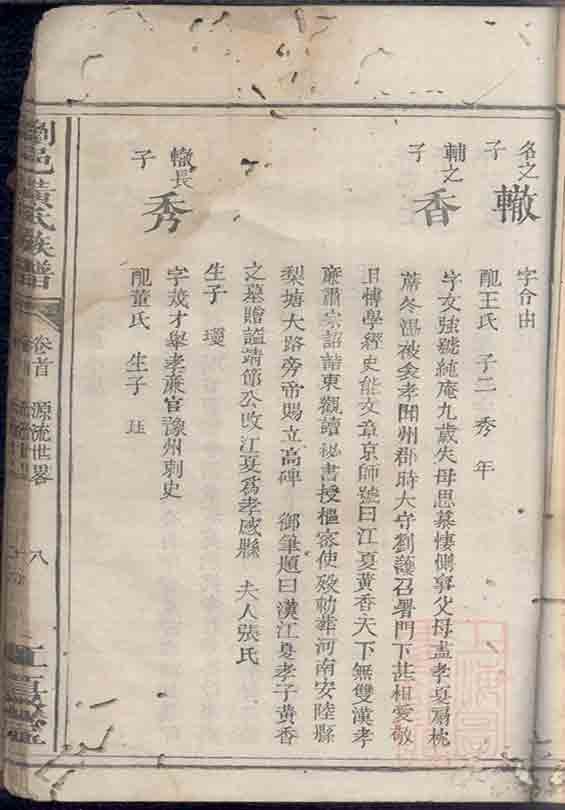 名之子 轍 字合由
配王氏 子二 秀 年
輔之子 香 字文強號純庵九歲失母思慕悽惻事父母盡孝夏扇枕
蓆冬溫被矣孝聞州郡時大守劉護召署門下甚相愛敬
且博學經史能文章京師號曰江夏黃香天下無雙漢孝
廉肅宗詔詣東觀讀祕書授樞密使歿勅葬河南安陸縣
梨塘大路旁帝賜立高碑 御筆題曰漢江夏孝子黃香
之墓贈謚靖節公改江夏為孝感縣 夫人張氏
生子 瓊
轍長子 秀 字茂才舉孝廉官豫州刺史
配董氏 生子 玨
劉邑黃氏族譜 卷首 源流世畧 八 江夏堂